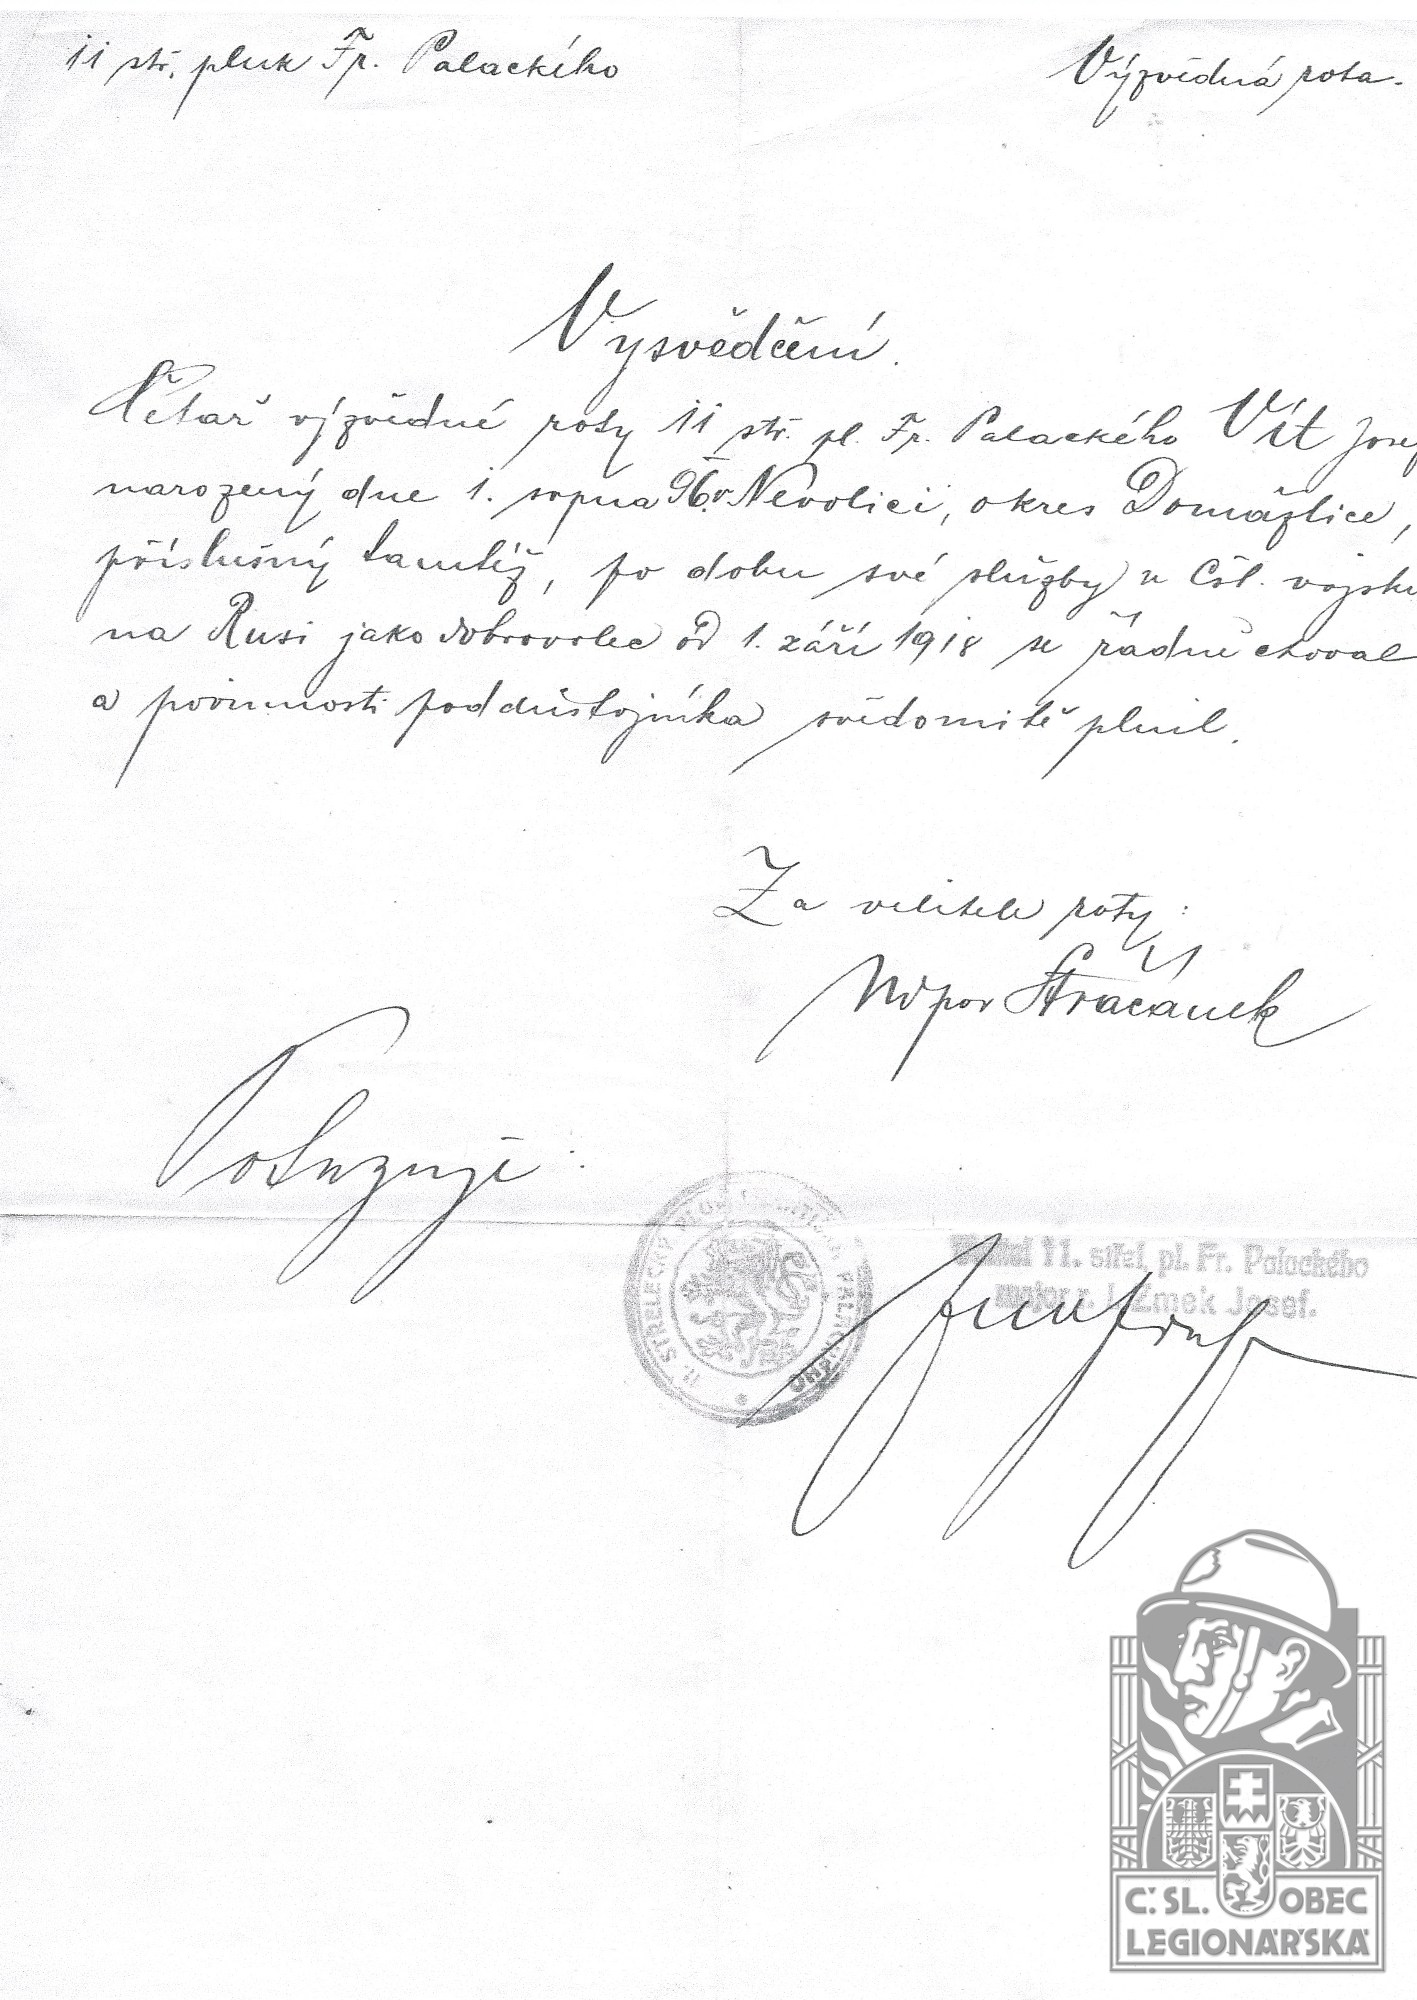 11 stř. pluk Fr. Palackého
Výzvědná rota.
Vysvědčení.
Četař výzvědné roty 11 stř. pl. Fr. Palackého Vít Josef
narozený dne 1. srpna 96. v Nevolici, okres Domažlice,
příslušný tamtéž, po dobu své služby v Čsl. vojsku
na Rusi jako dobrovolec od 1. září 1918 se řádně choval
a povinnosti poddůstojníka svědomitě plnil.
Za velitele roty:
Ndpor Stračánek
Potvzuji:
11. STŘELECKÝ PLUK FRANTIŠKA PALACKÉHO
Velitel 11. střel. pl. Fr. Palackého
major r. l. Zmek Josef.
Č.SL. OBEC
LEGIONÁŘSKÁ